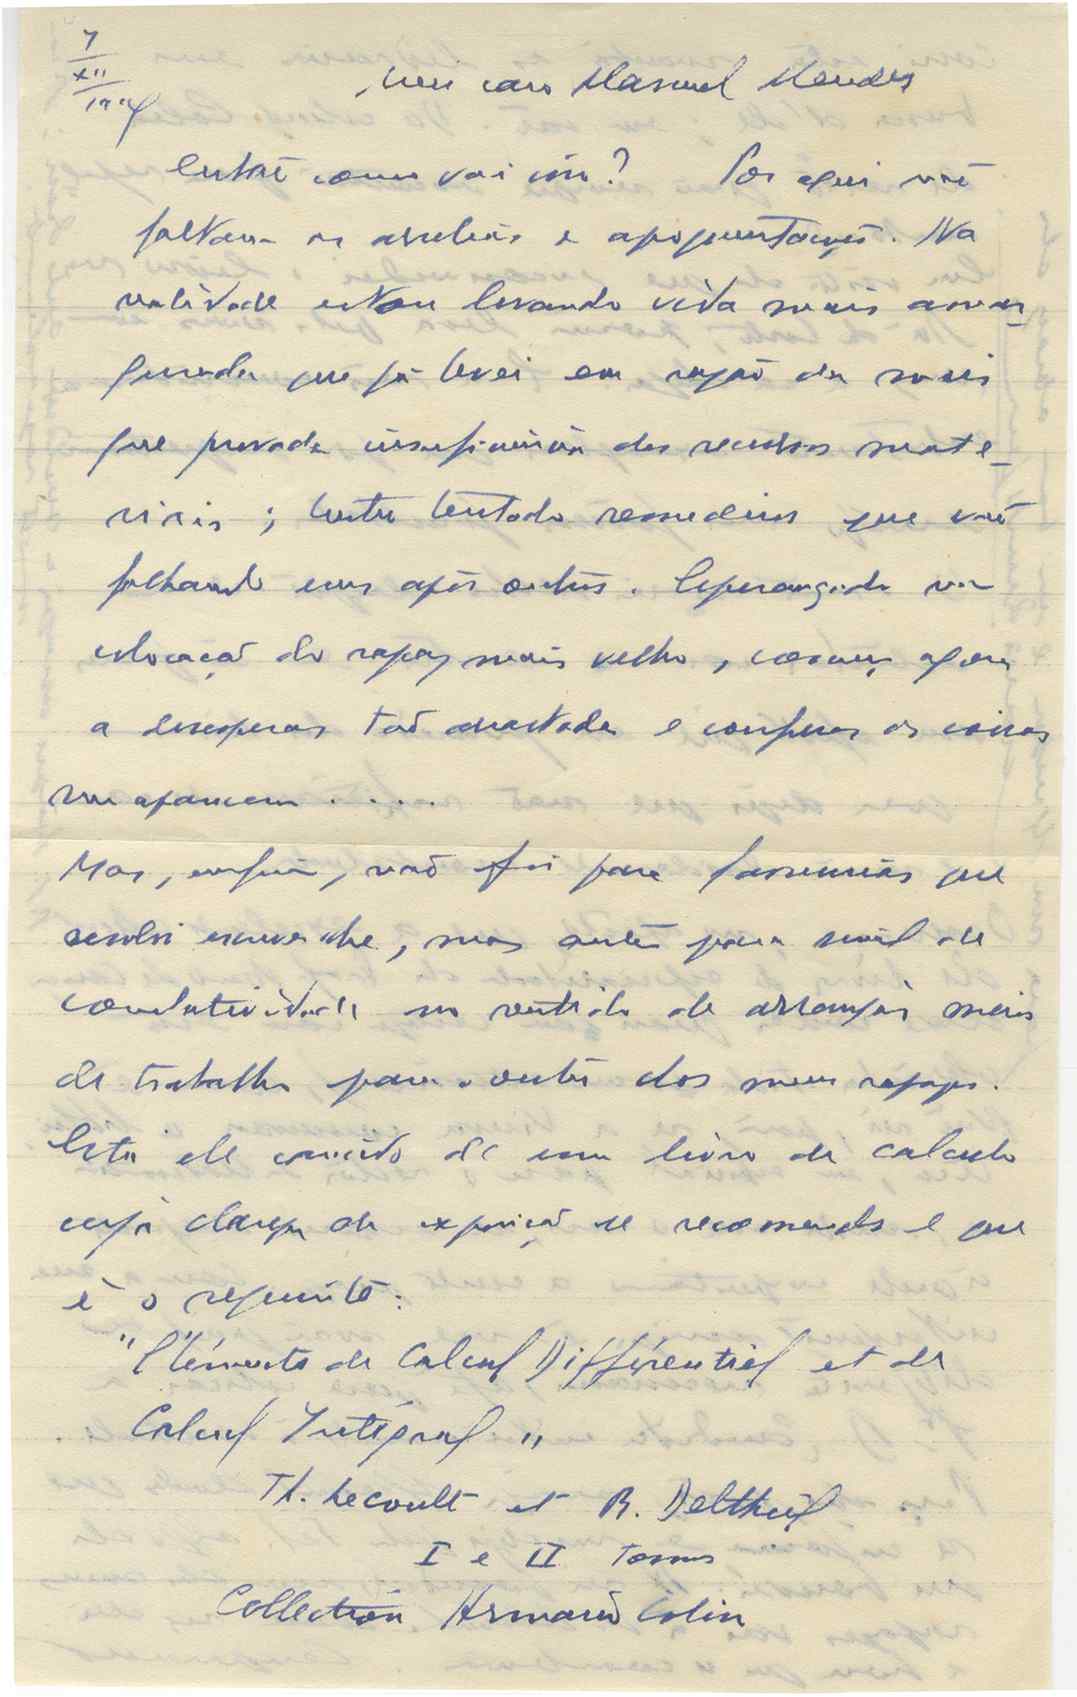 7
XII
Meu caro Manuel Mendes
Então como vai isso? Por aqui não
faltam as arrelias e apoquentações. Na
realidade estou levando vida mais amar-
gurada que já levei em razão da mais
que provada insuficiência dos recursos mate-
riais; tento remedios que vão
falhando uns após outros. Esperançado na
colocação do rapaz mais velho, começo agora
a desesperar tão arrastadas e confusas as coisas
me aparecem . . . . .
Mas, enfim, não foi para lamurias que
resolvi escrever-lhe, mas antes para
no sentido de arranjar mais
de trabalho para o outro dos meus rapazes.
Está ele de um livro de calculo
cuja clareza de exposição se recomenda e que
é o seguinte:
"Éléments de Calcul Différentiel et de
Calcul Intégral"
Th. Lecoult et R. Deltheil
I e II Tomos
Collection Armand Colin